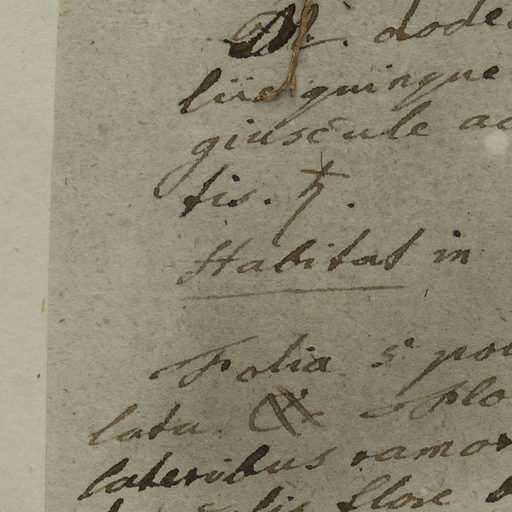 M. dode
liis quinque
giuscule ac
tis. ♄.
Habitat in
Folia s pou
lata. Flo
lateribus ramor
flore